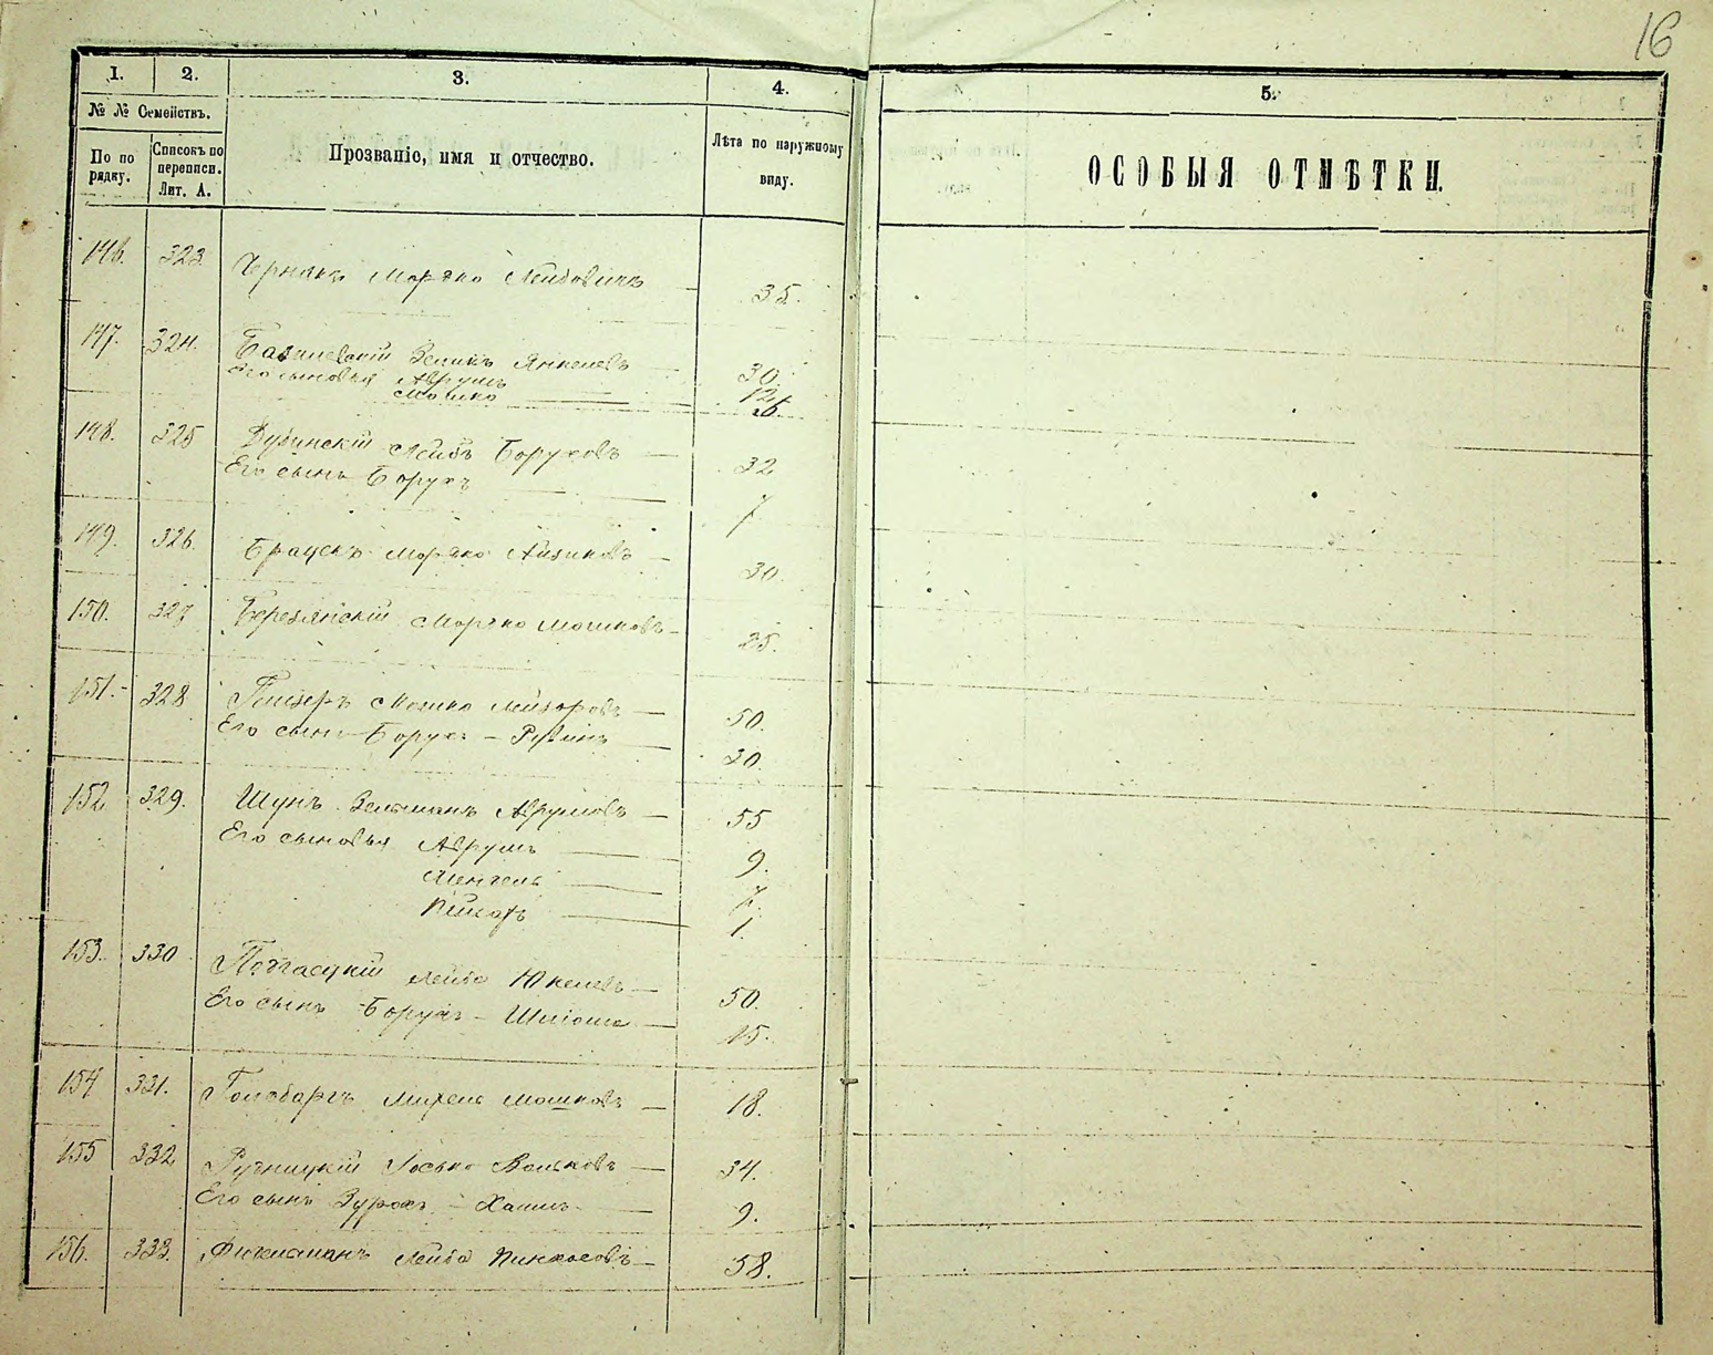 16
1. 2. 3. 4. 5.
№ № Семействъ.
По по рядку.
Списокъ по переписи. Лит. А.
Прозваніе, имя и отчество.
Лѣта по наружному виду.
ОСОБЫЯ ОТМѢТКИ.
146. 323. Чернякъ Мордко Лейбовичъ — 35.
147. 324. Базилевскій Зеликъ Янкелевъ — 30.
Его сыновья Аврумъ — 12
Мошко — 6.
148. 325 Дубинскій Лейбъ Боруховъ — 32
Его сынъ Борухъ — 7
149. 326. Мордко Айзиковъ — 30.
150. 327 Березянскій Мордко Мошковъ — 25.
151. 328 Мошко Лейзоровъ — 50.
Его сынъ Борухъ - Рувинъ — 30.
152 329. Шунъ Зельманъ Аврумовъ — 55
Его сыновья Аврумъ — 9.
Мендель — 7.
1.
153. 330 Подгаецкій Лейба Юкелевъ — 50.
Его сынъ Борухъ - Шлиома — 15.
154 331. Михель Мошковъ — 18.
155 332 Рудницкій Іосько Вольковъ — 34.
Его сынъ — 9.
156. 333. Фиксманъ Лейба Пинхасовъ — 58.